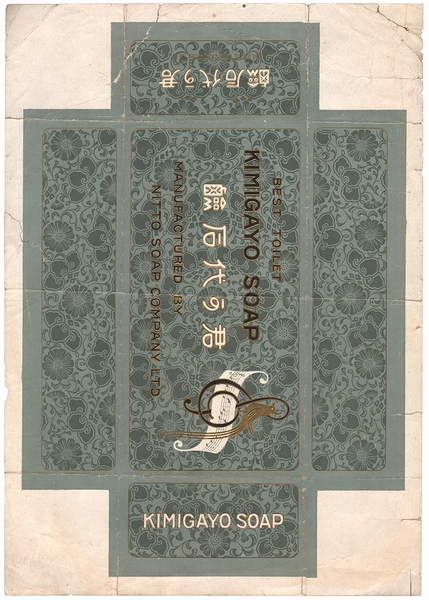 君か代石鹼
BEST TOILET
KIMIGAYO SOAP
君か代石鹼
MANUFACTURED BY
NITTO SOAP COMPANY LTD
KIMIGAYO SOAP